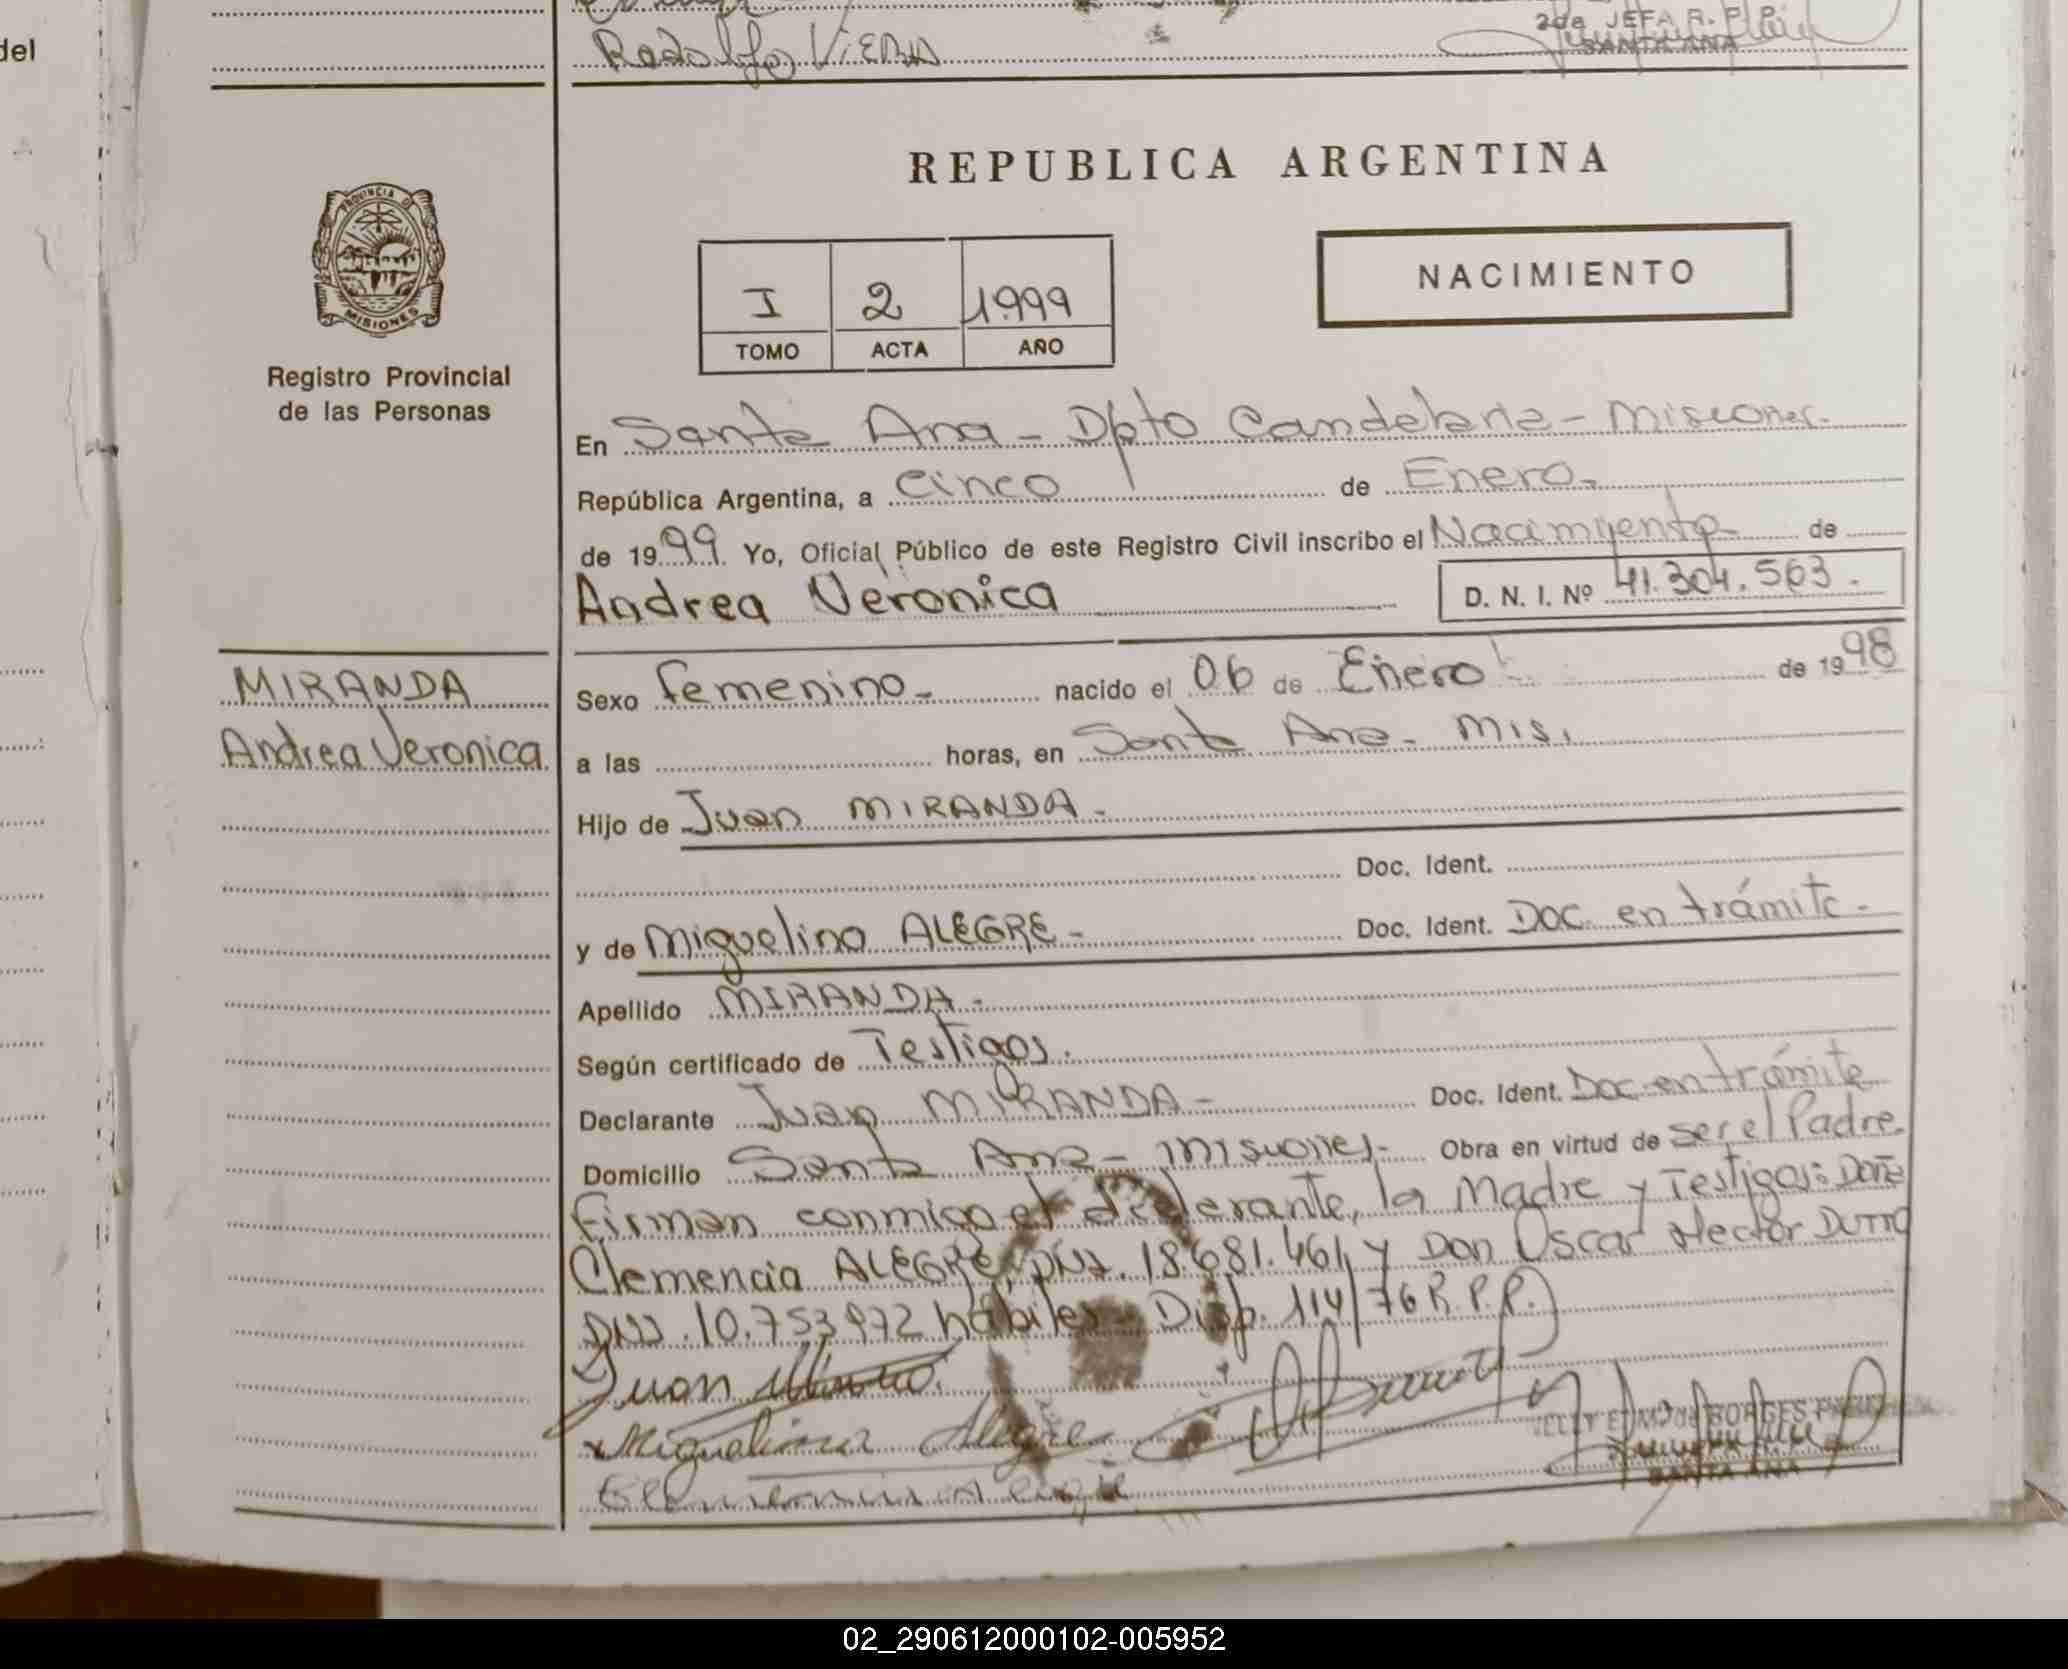 del
Rodolfo VIERA
2da JEFA R. P. P.
SANTA ANA
REPUBLICA ARGENTINA
PROVINCIA DE
MISIONES
Registro Provincial
de las Personas
I 2 1999
TOMO ACTA AÑO
NACIMIENTO
En Santa Ana - Dpto Candelaria - Misiones.
República Argentina, a cinco de Enero.
de 1999. Yo, Oficial Público de este Registro Civil inscribo el Nacimiento de
Andrea Veronica
D. N. I. Nº 41.304.563.
MIRANDA
Andrea Veronica
Sexo femenino. nacido el 06 de Enero de 1998
a las horas, en Santa Ana. Mis.
Hijo de Juan MIRANDA.
Doc. Ident.
y de Miguelina ALEGRE - Doc. Ident. Doc. en trámite.
Apellido MIRANDA.
Según certificado de Testigos.
Declarante Juan MIRANDA - Doc. Ident. Doc en trámite
Domicilio Santa Ana - Misiones. Obra en virtud de ser el Padre.
Firman conmigo el declarante, la Madre y Testigos: Doña
Clemencia ALEGRE, DNI. 18.681.461 y Don Oscar Hector DUTTO
DNI. 10.753.972 hábiles. Disp. 114/76 R.P.P.
Juan
Miguelina Alegre
SANTA ANA
02_290612000102-005952